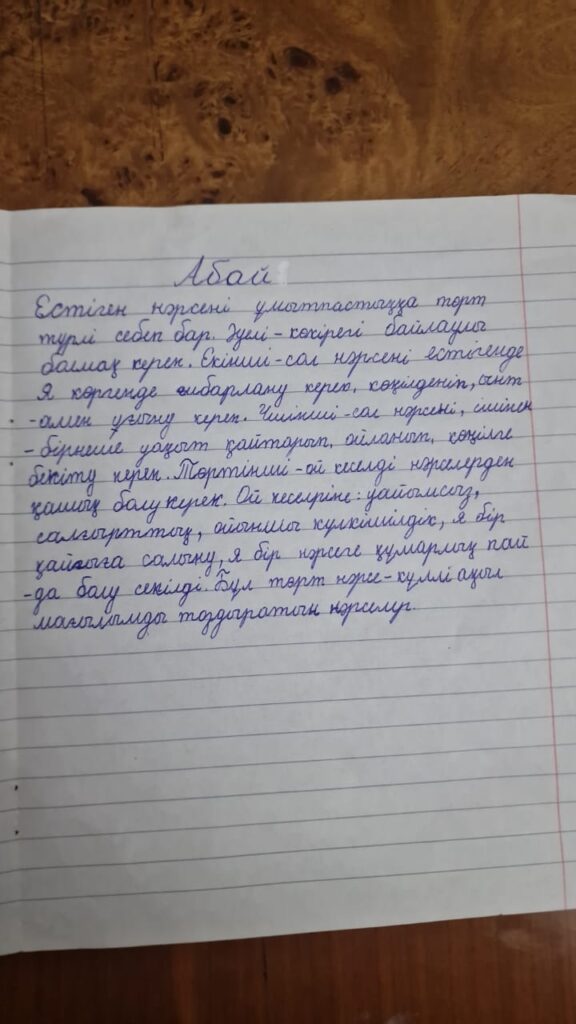 Абай
Естіген нәрсені ұмытпастыққа төрт
түрлі себеп бар. Әуелі - көкірегі байлаулы
болмақ керек. Екінші - сол нәрсені естігенде
я көргенде ғибарлану керек, көңілденіп, ынт
-амен ұғыну керек. Үшінші - сол нәрсені, ішінен
- бірнеше уақыт қайтарып, ойланып, көңілге
бекіту керек. Төртінші - ой кеселді нәрселерден
қашық болу керек. Ой кеселріне: уайымсыз,
салғырттық, ойыншы күлкішілдік, я бір
қайғыға салыну, я бір нәрсеге құмарлық пай
-да болу секілді. Бұл төрт нәрсе - күллі ақыл
мағылымды тоздыратын нәрселер.